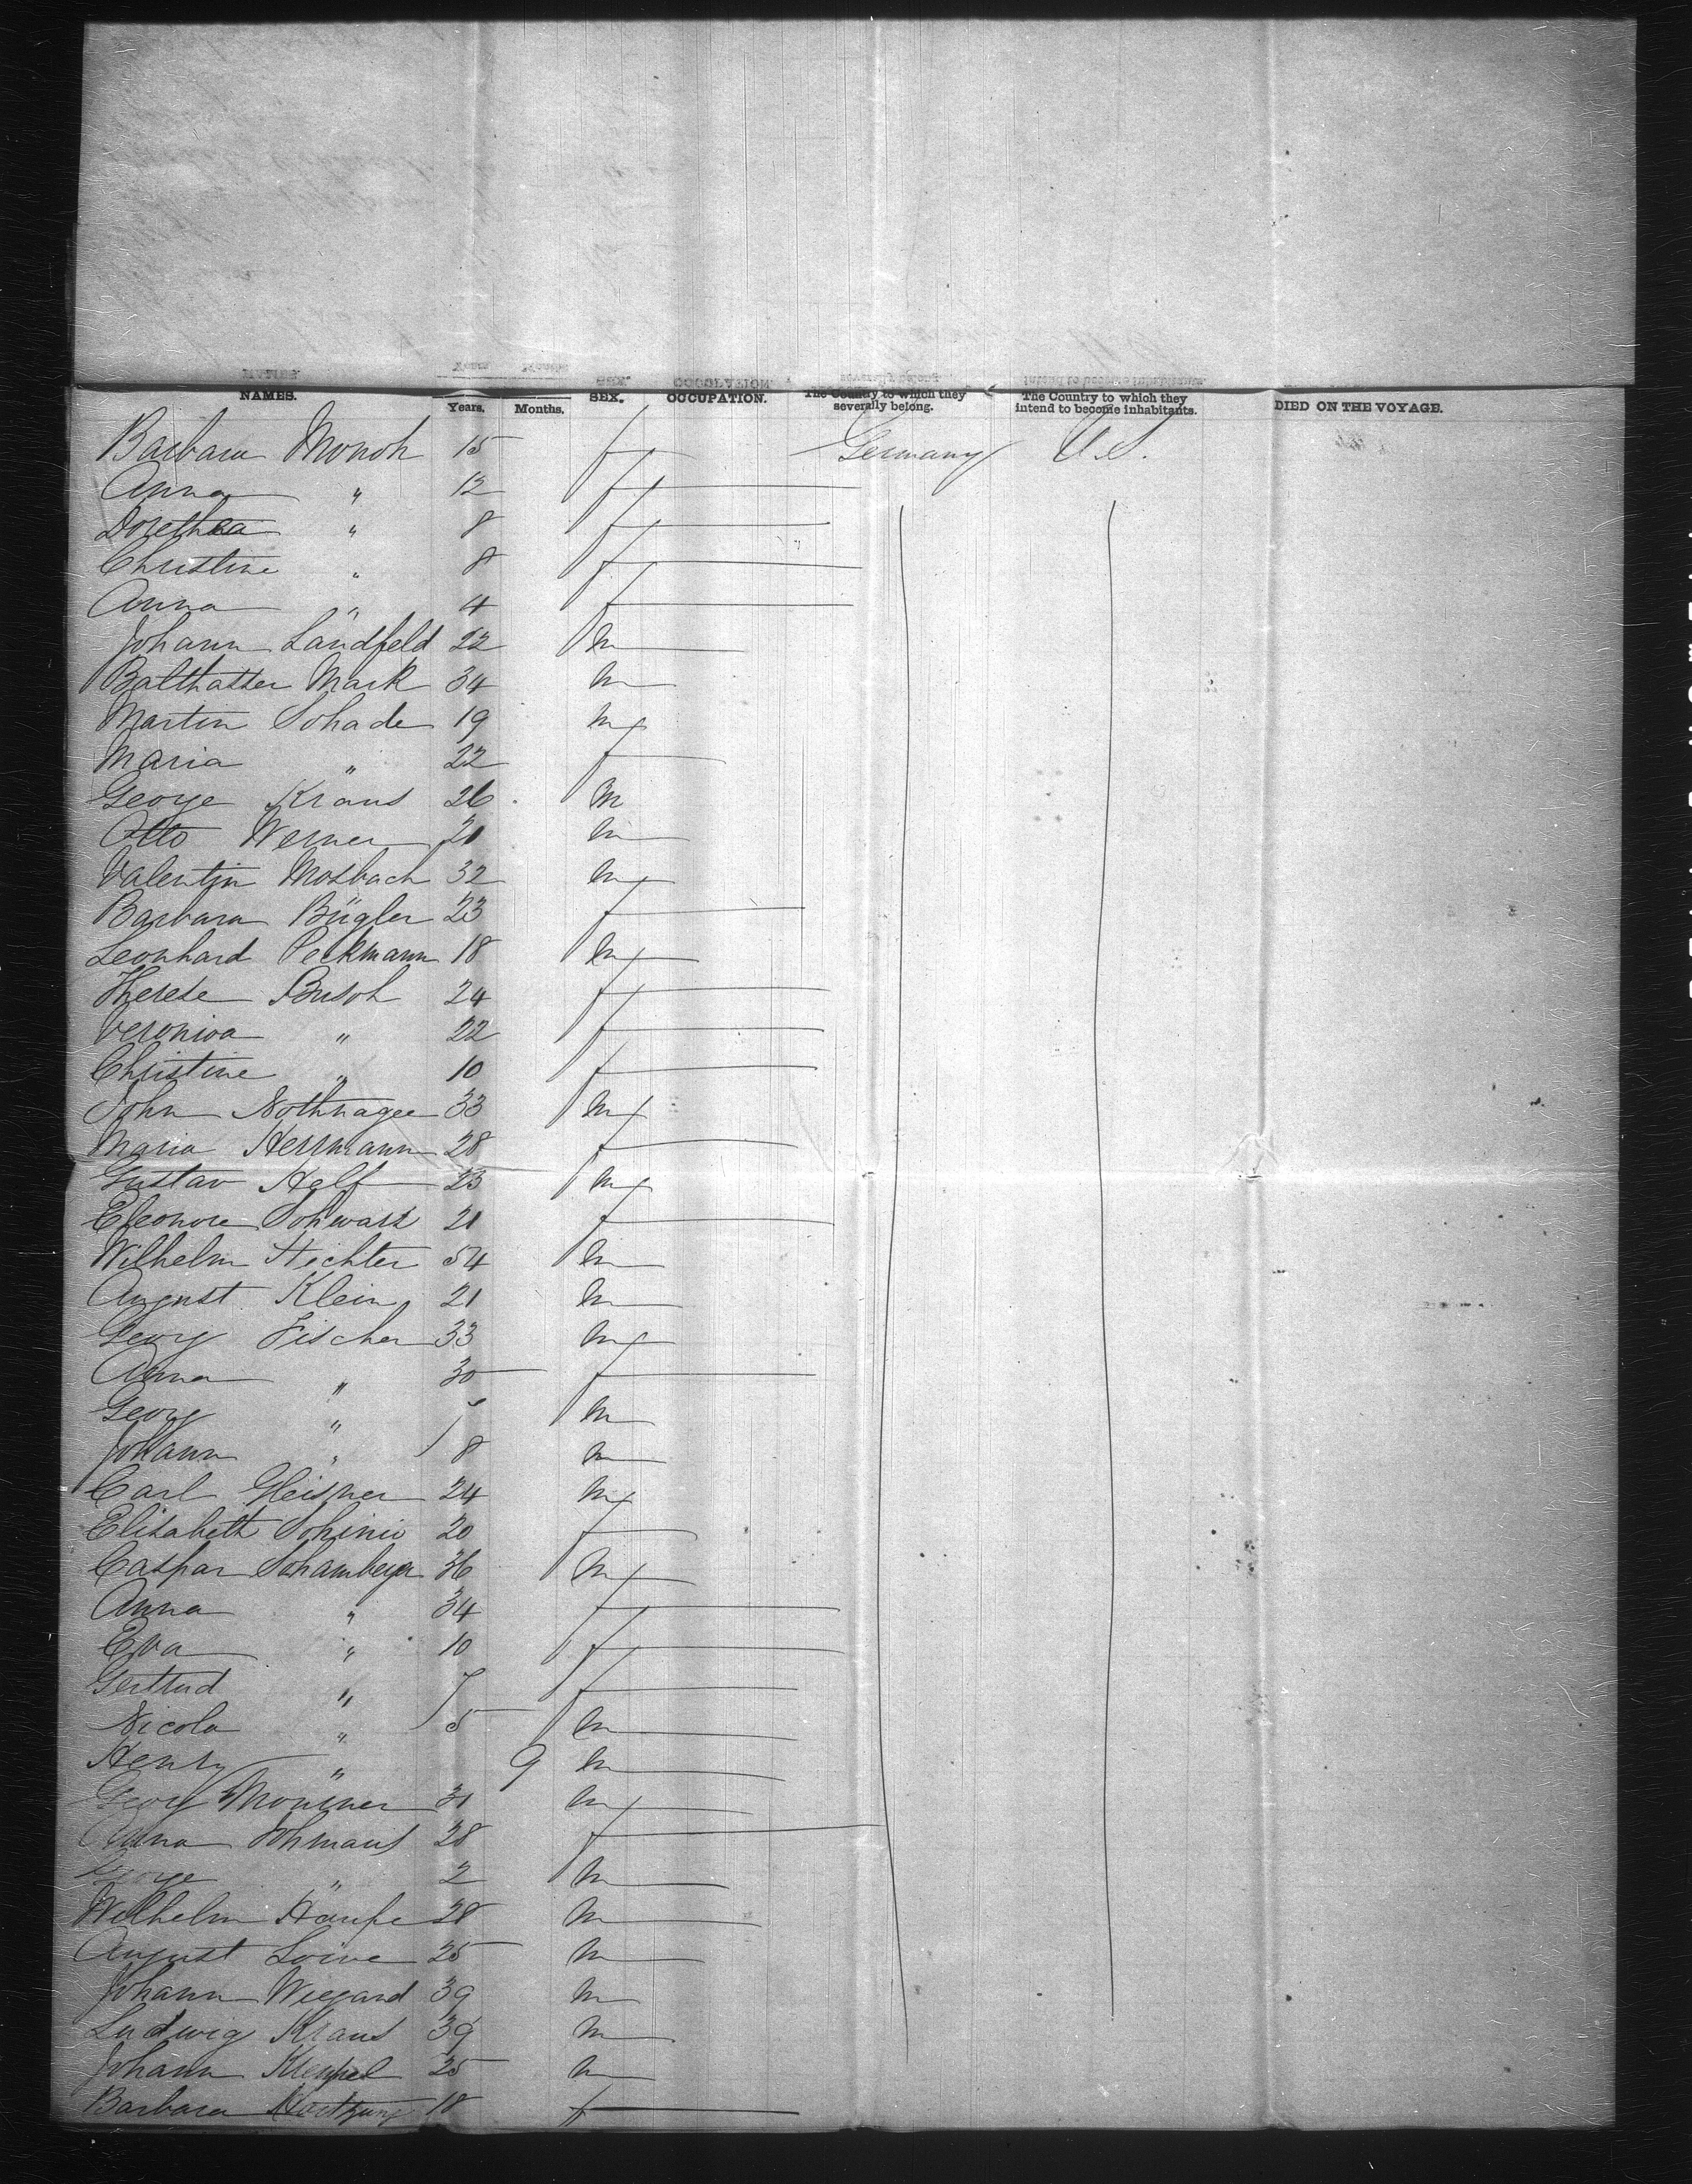 NAMES. Years. Months. SEX. OCCUPATION. The Country to which they severally belong. The Country to which they intend to become inhabitants. DIED ON THE VOYAGE.
Barbara Monch 15 f Germany U.S.
Anna " 12 f
Dorethea " 8 f
Christine " 8 f
Anna " 4 f
Johann Landfeld 22 m
Balthasser Mark 34 m
Martin Schade 19 m
Maria " 22 f
George Kraus 26 m
Otto Werner 21 m
Valentin Mosbach 32 m
Barbara Bügler 23 f
Leonhard Peckmann 18 m
Therese Busch 24 f
Veronica " 22 f
Christine " 10 f
John Nothnagee 33 m
Maria Herrmann 28 f
Gustav Half 23 m
Eleonore Schwarz 21 f
Wilhelm Hechter 54 m
August Klein 21 m
Georg Fischer 33 m
Anna " 30 f
Georg " m
Johann " 8 m
Carl Gleisner 24 m
Elisabeth 20 f
Caspar 36 m
Anna " 34 f
Eva " 10 f
Gertrud " 7 f
Nicola " 5 m
Henry " 9 m
Georg 31 m
Anna 28 f
George " 2 m
Wilhelm 28 m
August 25 m
Johann Wiegand 39 m
Ludwig Kraus 39 m
Johann 25 m
Barbara 18 f